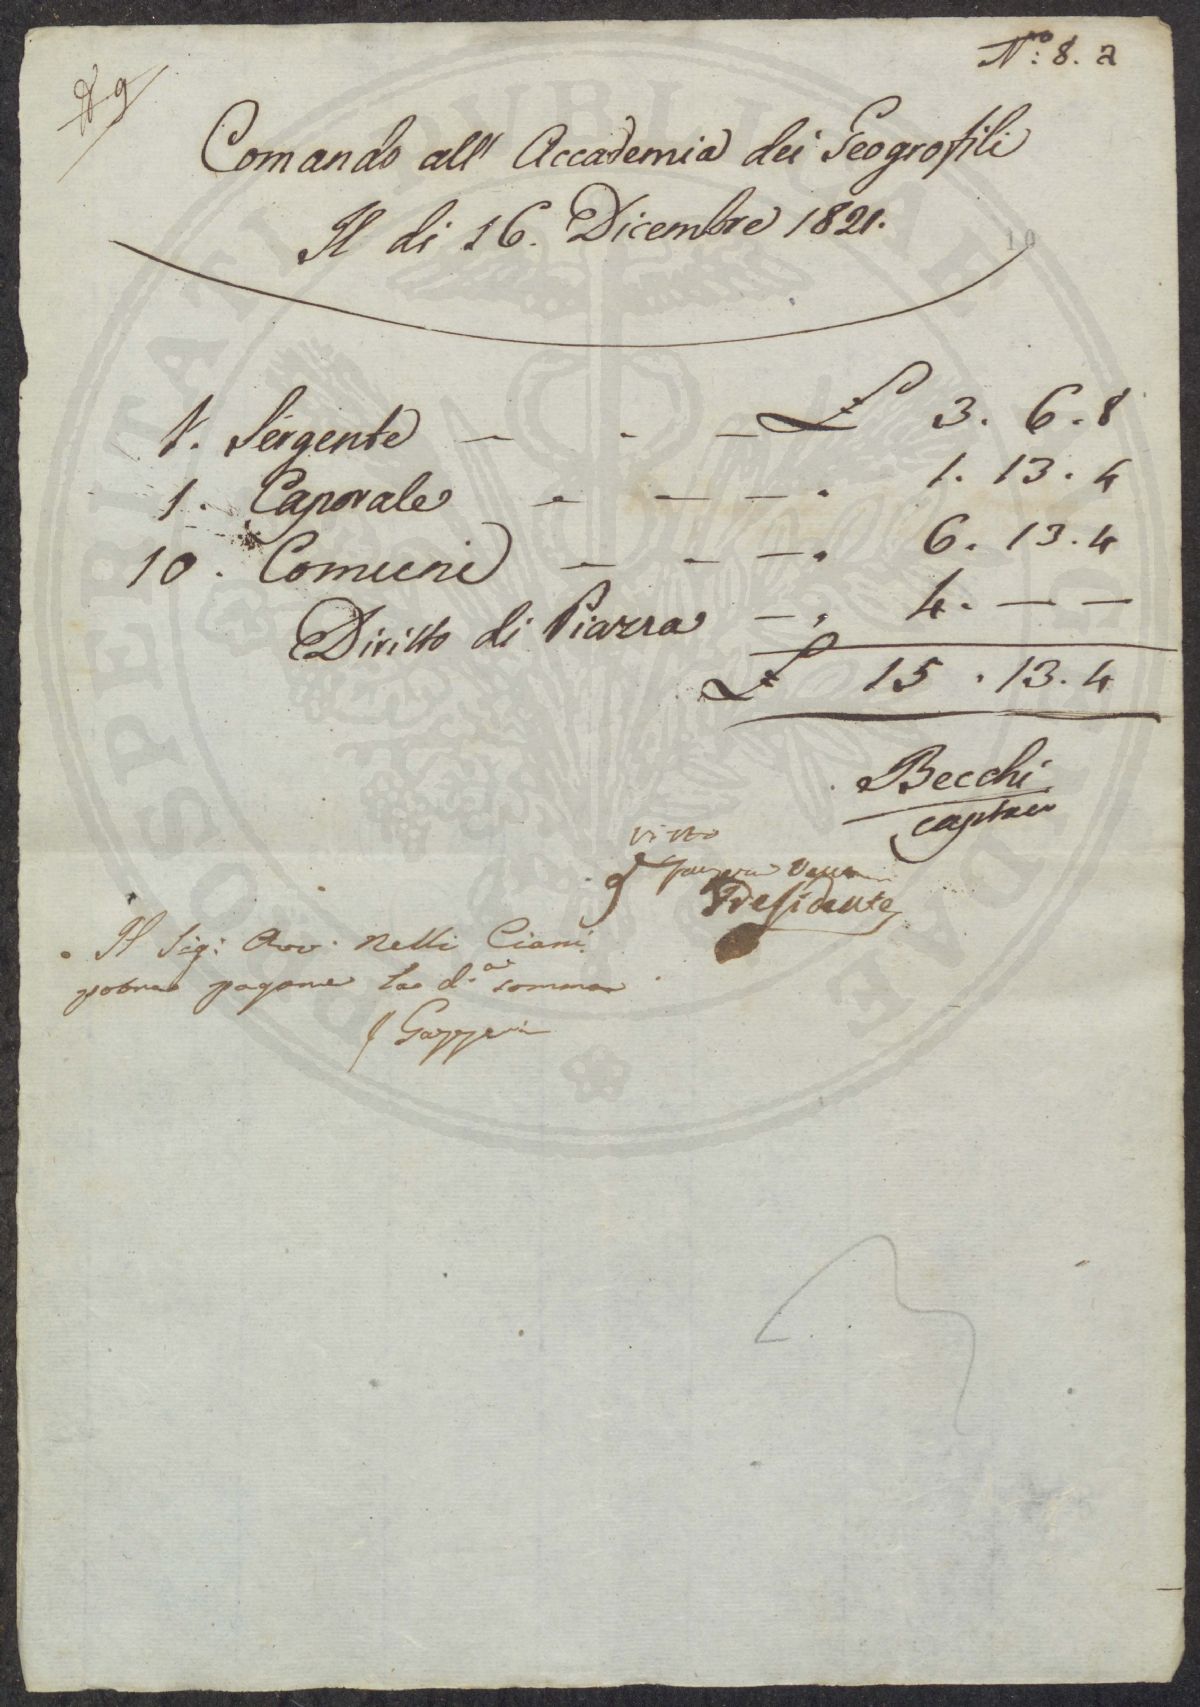 No: 8. a
9
Comando all' Accademia dei Geogrofili
Il di 16. Dicembre 1821.
10
1. Sergente £ 3. 6. 8
1. Caporale 1. 13. 4
10. Comuni 6. 13. 4
Diritto di Piazza 4. — —
£ 15. 13. 4
Becchi
Visto
Presidente
Il Sig: Avv. Nelli Ciani
potrà pagare la d.a somma
Gazzeri
PROSPERITATI PUBLICAE AUGENDAE